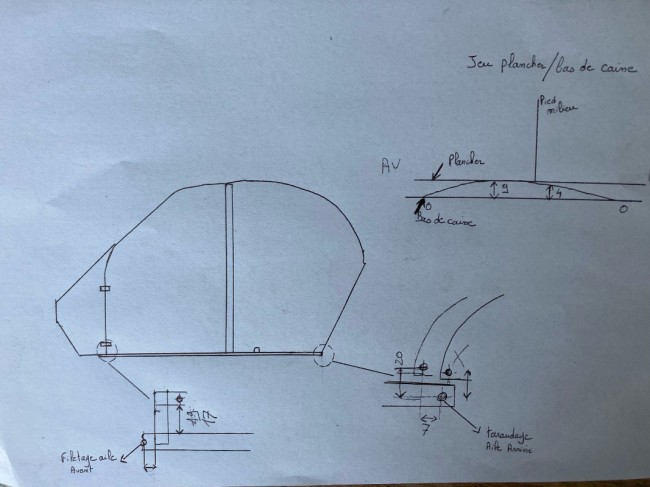 Jeu plancher/bas de caisse
Pied
milieu
AV
Plancher
9
4
0
0
Bas de caisse
20
X
7
17
Filetage aile
Avant
taraudage
Aile Arrière